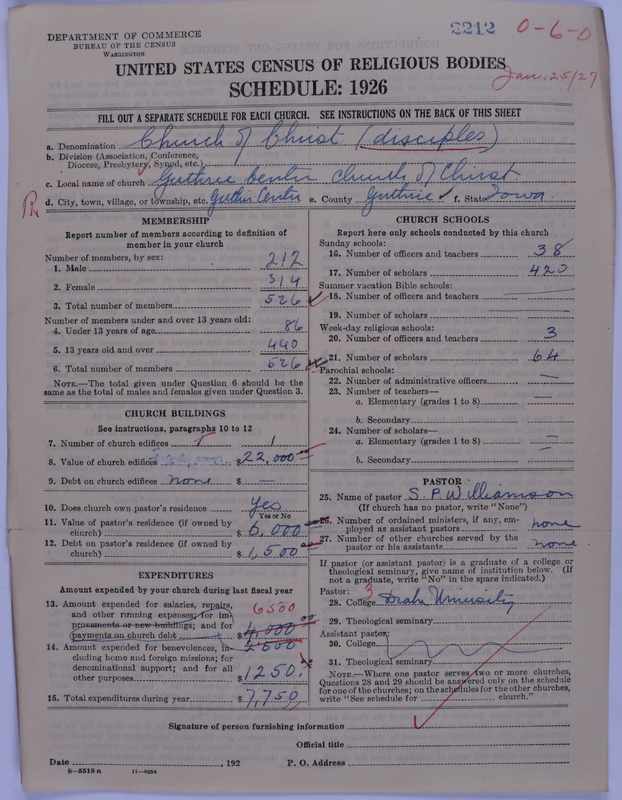 DEPARTMENT OF COMMERCE
BUREAU OF THE CENSUS
WASHINGTON
2212
0-6-0
Jan. 25/27
UNITED STATES CENSUS OF RELIGIOUS BODIES
SCHEDULE: 1926
FILL OUT A SEPARATE SCHEDULE FOR EACH CHURCH. SEE INSTRUCTIONS ON THE BACK OF THIS SHEET
a. Denomination Church of Christ (disciples)
b. Division (Association, Conference,
Diocese, Presbytery, Synod, etc.)
c. Local name of church Guthrie Center Church of Christ
d. City, town, village, or township, etc. Guthrie Center e. County Guthrie f. State Iowa
MEMBERSHIP
Report number of members according to definition of
member in your church
Number of members, by sex:
1. Male 212
2. Female 314
3. Total number of members 526
Number of members under and over 13 years old:
4. Under 13 years of age 86
5. 13 years old and over 440
6. Total number of members 526
NOTE.—The total given under Question 6 should be the
same as the total of males and females given under Question 3.
CHURCH BUILDINGS
See instructions, paragraphs 10 to 12
7. Number of church edifices 1
8. Value of church edifices $22,000
9. Debt on church edifices none $ —
10. Does church own pastor's residence Yes
Yes or No
11. Value of pastor's residence (if owned by
church) $6,000
12. Debt on pastor's residence (if owned by
church) $1,500
EXPENDITURES
Amount expended by your church during last fiscal year
13. Amount expended for salaries, repairs,
and other running expenses; for im-
provements or new buildings; and for
payments on church debt $4,000 00
6500
14. Amount expended for benevolences, in-
cluding home and foreign missions; for
denominational support; and for all
other purposes $1250.
15. Total expenditures during year $7,750
CHURCH SCHOOLS
Report here only schools conducted by this church
Sunday schools:
16. Number of officers and teachers 38
17. Number of scholars 420
Summer vacation Bible schools:
18. Number of officers and teachers —
19. Number of scholars —
Week-day religious schools:
20. Number of officers and teachers 3
21. Number of scholars 64
Parochial schools:
22. Number of administrative officers —
23. Number of teachers—
a. Elementary (grades 1 to 8) —
b. Secondary
24. Number of scholars—
a. Elementary (grades 1 to 8) —
b. Secondary —
PASTOR
25. Name of pastor S. P. Williamson
(If church has no pastor, write "None")
26. Number of ordained ministers, if any, em-
ployed as assistant pastors none
27. Number of other churches served by the
pastor or his assistants none
If pastor (or assistant pastor) is a graduate of a college or
theological seminary, give name of institution below. (If
not a graduate, write "No" in the space indicated.)
Pastor: 3
28. College Drake University
29. Theological seminary
Assistant pastor:
30. College
31. Theological seminary
NOTE.—Where one pastor serves two or more churches,
Questions 28 and 29 should be answered only on the schedule
for one of the churches; on the schedules for the other churches,
write "See schedule for church."
Signature of person furnishing information
Official title
Date , 192 P. O. Address
8-5518 a 11-9054